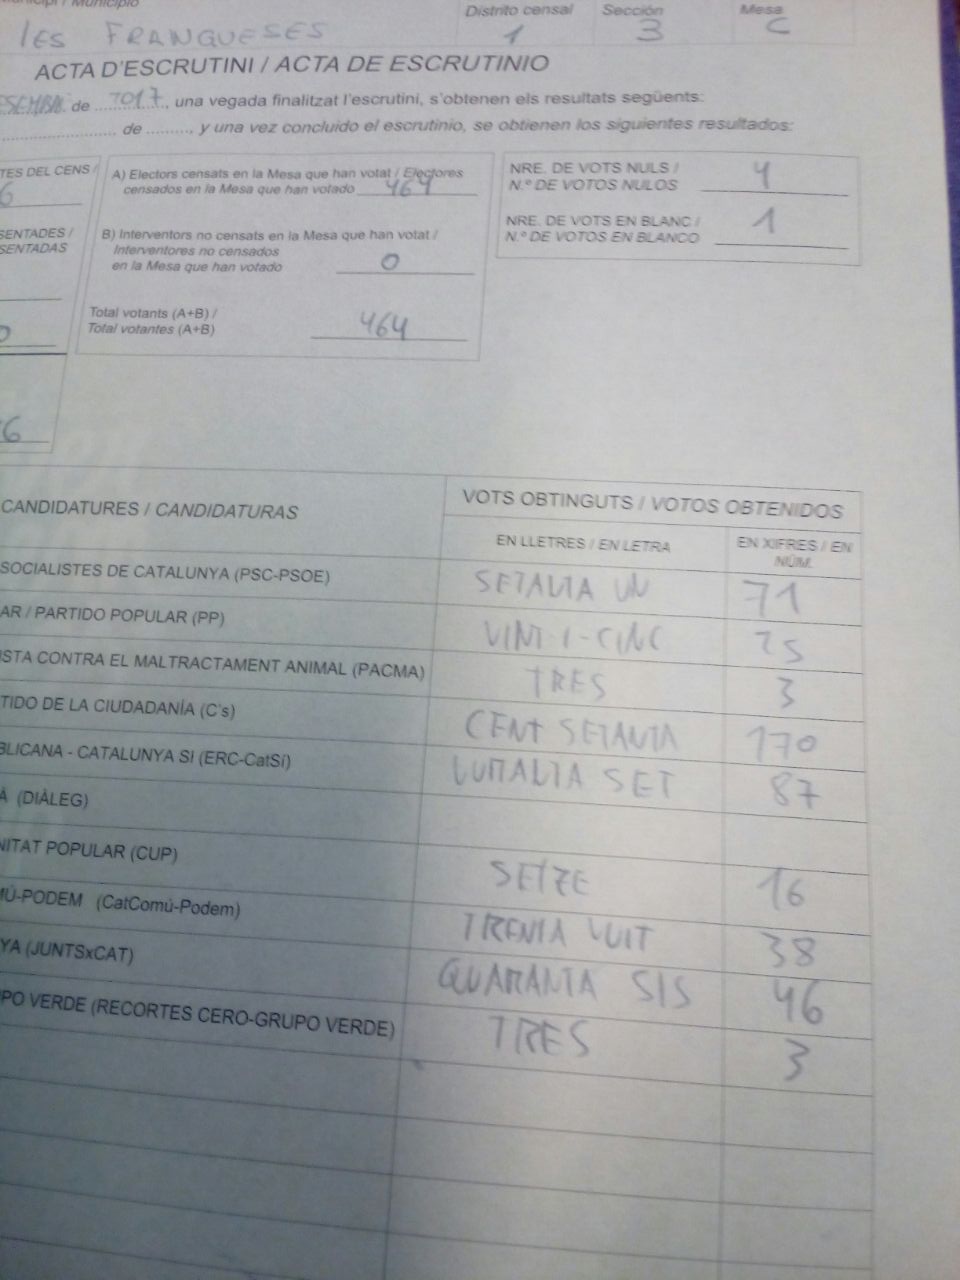 Municipi / Municipio
Distrito censal Sección Mesa
les FRANQUESES 1 3 C
ACTA D'ESCRUTINI / ACTA DE ESCRUTINIO
de 2017, una vegada finalitzat l'escrutini, s'obtenen els resultats següents:
de ........, y una vez concluido el escrutinio, se obtienen los siguientes resultados:
TES DEL CENS /
6
SENTADES /
SENTADAS
0
6
A) Electors censats en la Mesa que han votat / Electores
censados en la Mesa que han votado 464
B) Interventors no censats en la Mesa que han votat /
Interventores no censados
en la Mesa que han votado 0
Total votants (A+B) /
Total votantes (A+B) 464
NRE. DE VOTS NULS /
N.º DE VOTOS NULOS 4
NRE. DE VOTS EN BLANC /
N.º DE VOTOS EN BLANCO 1
CANDIDATURES / CANDIDATURAS
VOTS OBTINGUTS / VOTOS OBTENIDOS
EN LLETRES / EN LETRA
EN XIFRES / EN
NÚM.
SOCIALISTES DE CATALUNYA (PSC-PSOE) SETANTA UN 71
AR / PARTIDO POPULAR (PP) VINT-I-CINC 25
ISTA CONTRA EL MALTRACTAMENT ANIMAL (PACMA) TRES 3
TIDO DE LA CIUDADANÍA (C's) CENT SETANTA 170
BLICANA - CATALUNYA SÍ (ERC-CatSí) VUITANTA SET 87
À (DIÀLEG)
NITAT POPULAR (CUP) SETZE 16
MÚ-PODEM (CatComú-Podem) TRENTA VUIT 38
YA (JUNTSxCAT) QUARANTA SIS 46
PO VERDE (RECORTES CERO-GRUPO VERDE) TRES 3